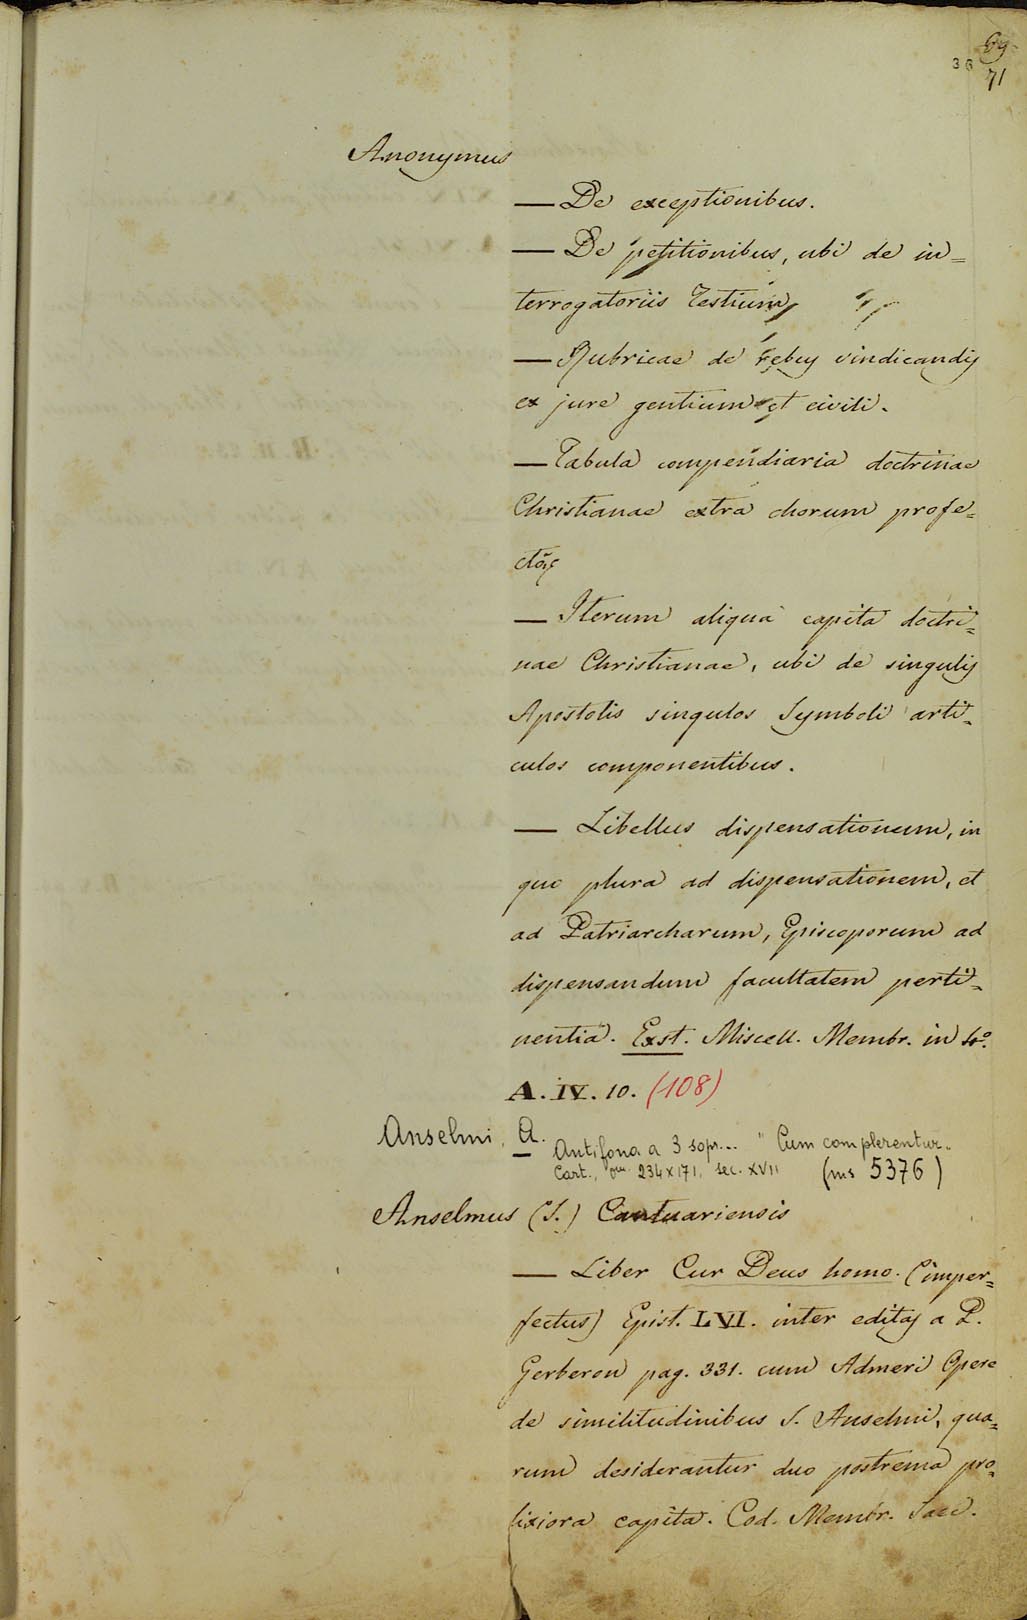 69
36 71
Anonymus
— De exceptionibus.
— De petitionibus, ubi de in=
terrogatoriis Testium
— Rubricae de rebus vindicandis
ex jure gentium et civili.
— Tabula compendiaria doctrinae
Christianae extra chorum profe=
— Iterum aliqua capita doctri=
nae Christianae, ubi de singulis
Apostolis singulos Symboli arti=
culos componentibus.
— Libellus dispensationum, in
quo plura ad dispensationem, et
ad Patriarcharum, Episcoporum ad
dispensandum facultatem perti=
nentia. Exst. Miscell. Membr. in 4º.
A. IV. 10. (108)
Anselmi, A.
— Antifona a 3 sopr... "Cum complerentur"
Cart., mm. 234x171, sec. XVII (ms 5376)
Anselmus (S.) Cantuariensis
— Liber Cur Deus homo. (imper=
fectus) Epist. LVI. inter editas a P.
Gerberon pag. 331. cum Admeri Opere
de similitudinibus S. Anselmi, quo=
rum desiderantur duo postrema pro=
lixiora capita. Cod. Membr. Saec.